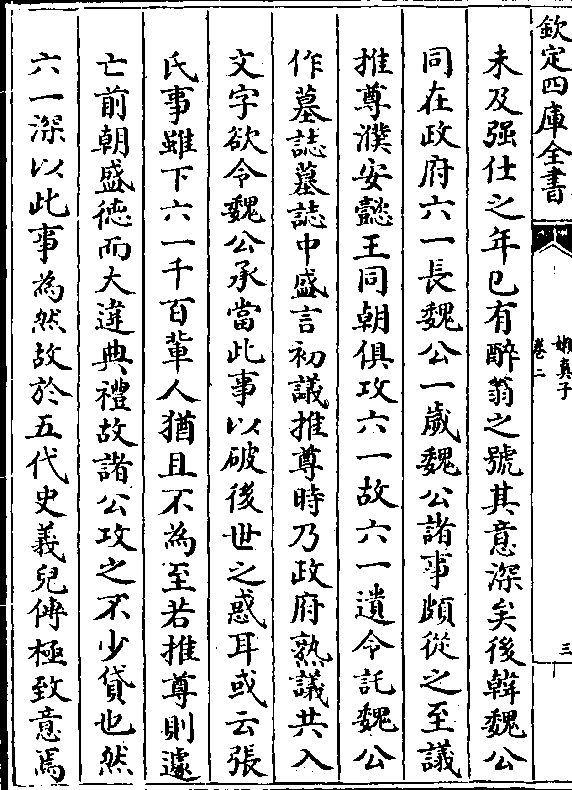 欽定四庫全書
嬾真子
卷二
三
未及强仕之年已有醉翁之號其意深矣後韓魏公
同在政府六一長魏公一歲魏公諸事頗從之至議
推尊濮安懿王同朝俱攻六一故六一遺令託魏公
作墓誌墓誌中盛言初議推尊時乃政府熟議共入
文字欲令魏公承當此事以破後世之惑耳或云張
氏事雖下六一千百輩人猶且不為至若推尊則遽
亡前朝盛徳而大違典禮故諸公攻之不少貸也然
六一深以此事為然故於五代史義兒傳極致意焉